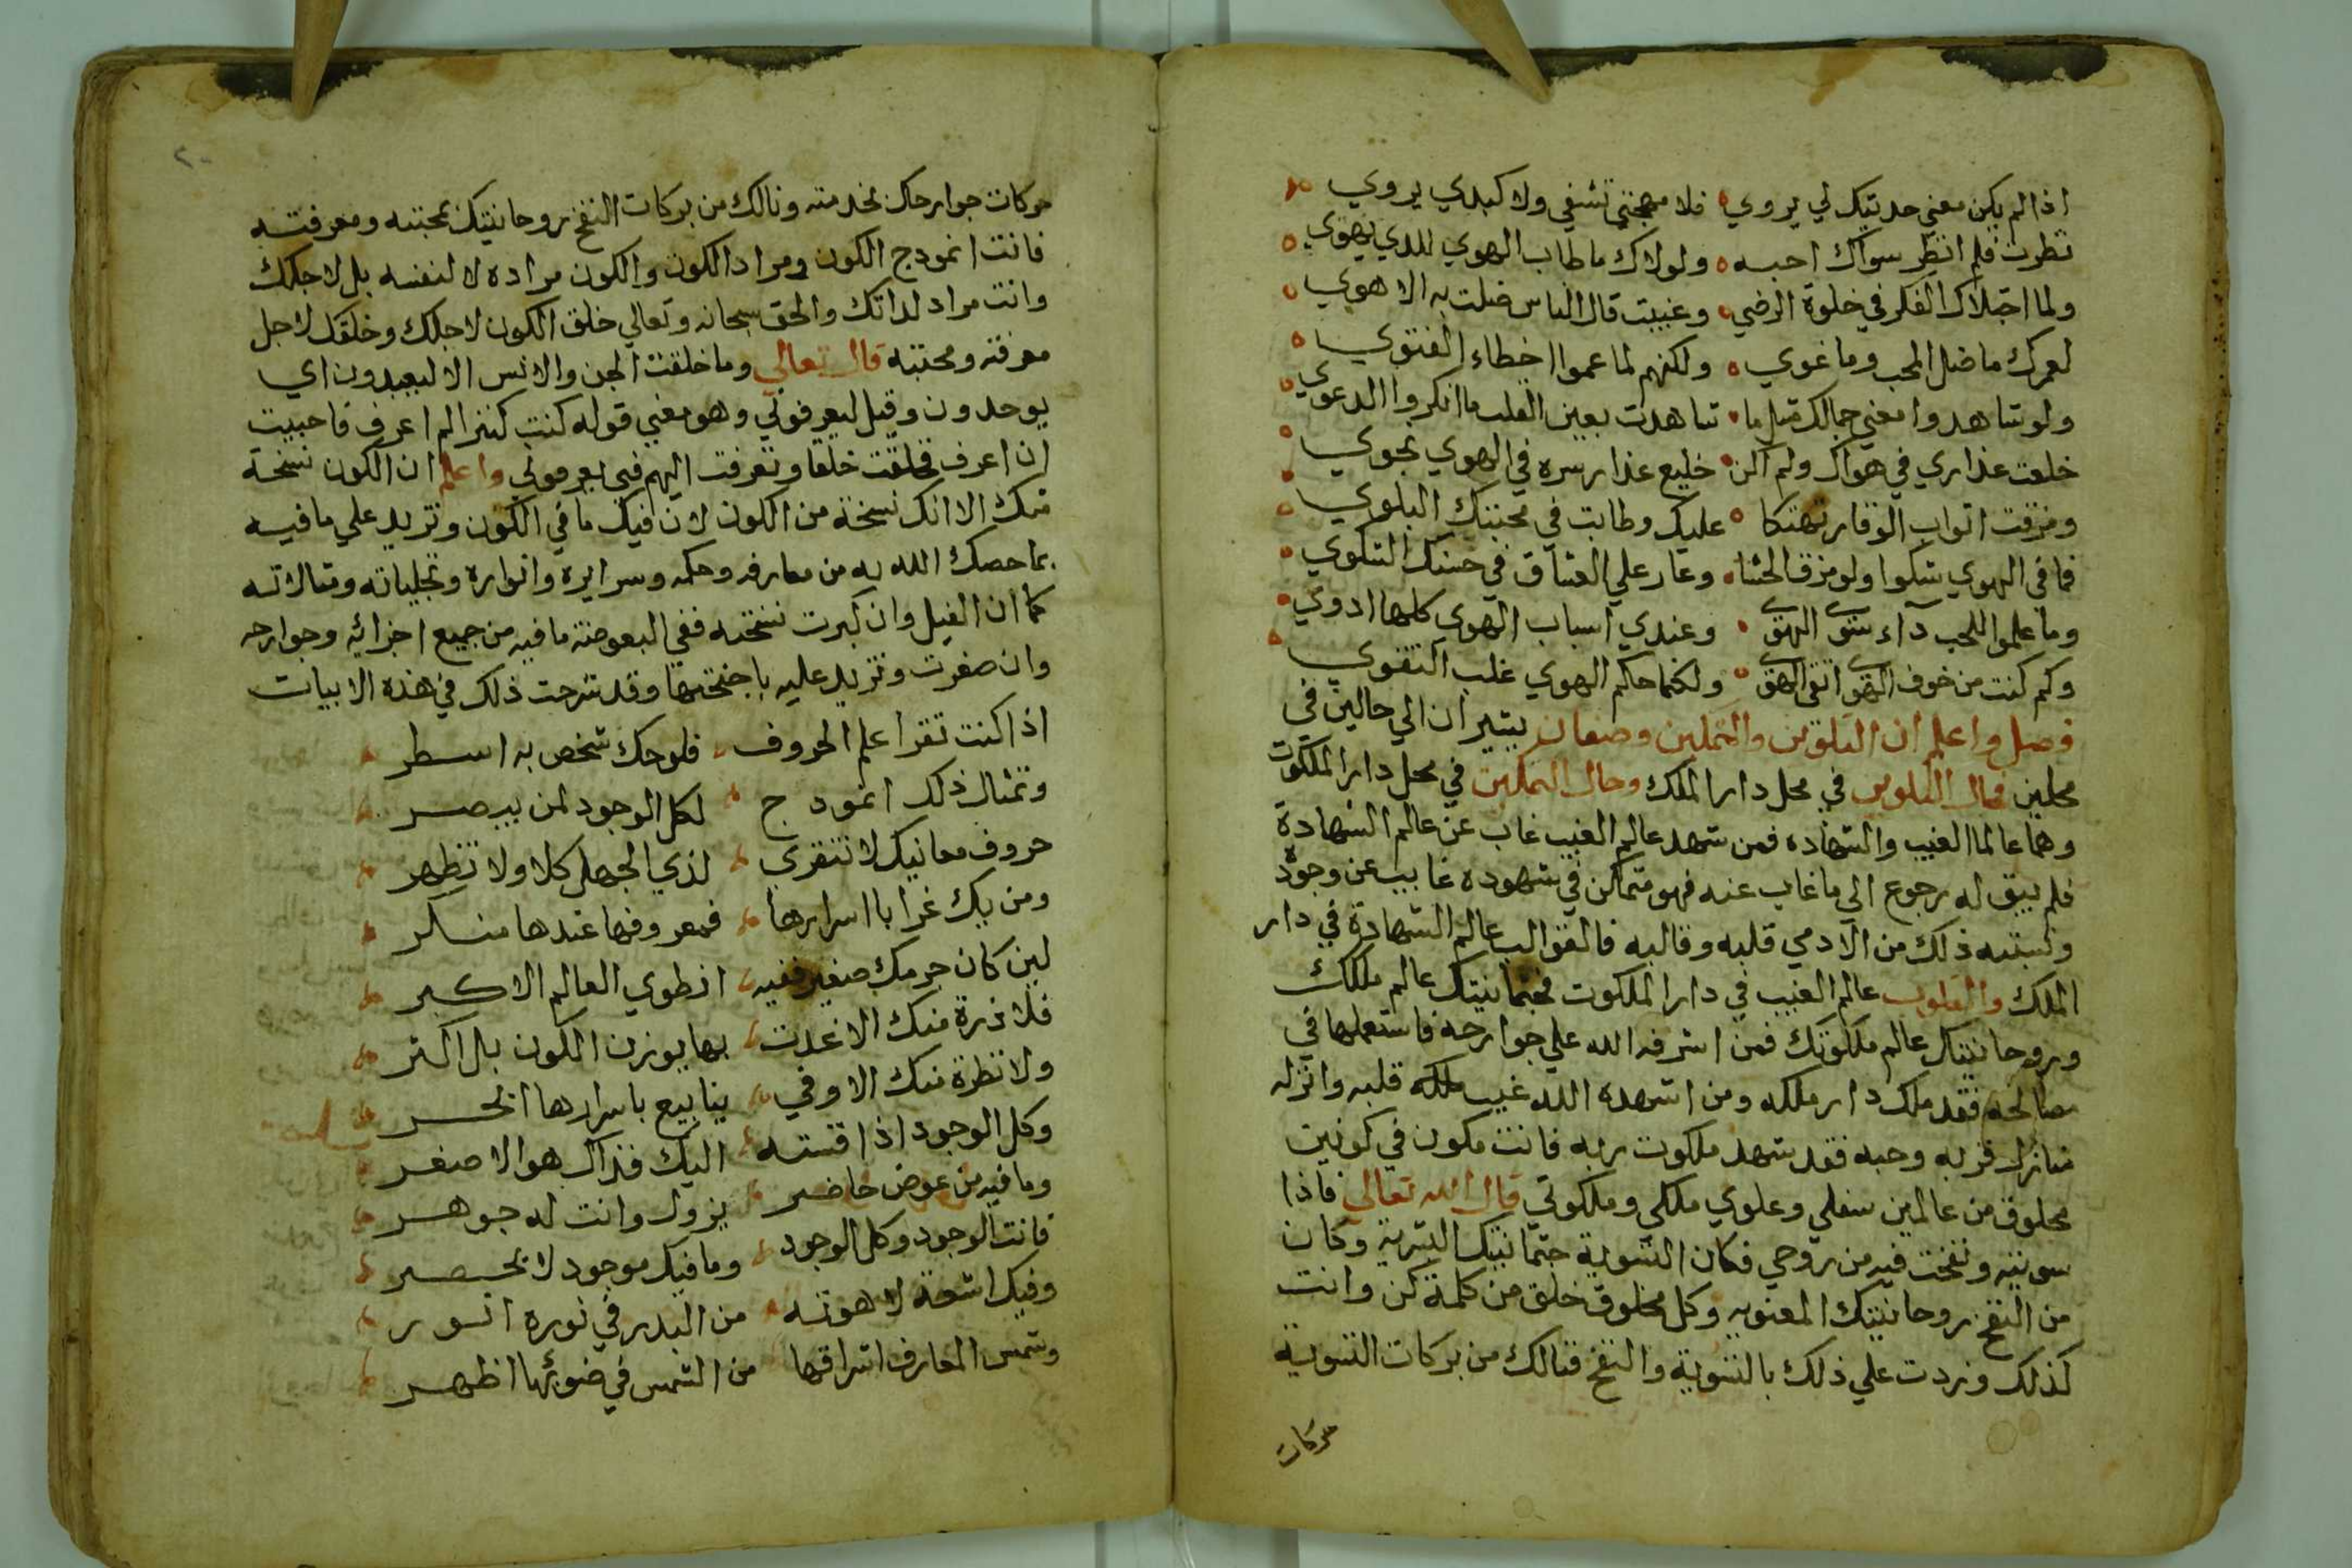 اذا لم يكن معني حديثك لي يروي فلا مهجتي تشفي ولا كبدي يروي
نظرت فلم انظر سواك احبه ولولاك ما طاب الهوي للذي يهوي
ولما اجتلاك الفكر في خلوة الرضي وغيبت قال الناس ضلت به الاهوي
لعمرك ما ضل المحب وما غوي ولكنهم لما عموا اخطاء الفتوي
ولو شاهدوا معني جمالك مثل ما شاهدت بعين القلب ما انكروا الدعوي
خلعت عذاري في هواك ولم اكن خليع عذار سره في الهوي نجوي
ومزقت اثواب الوقار تهتكا عليك وطابت في محبتك البلوي
فما في الهوي شكوا ولو مزق الحشا وعار علي العشاق في حبك الشكوي
وما علموا للحب دآء سوي الهوي وعندي اسباب الهوي كلها ادوي
وكم كنت من خوف الهوي اتقي الهوي ولكنما حاكم الهوي غلب التقوي
فصل واعلم ان التلوين والتمكين وصفان يشيران الي حالين في
محلين فحال التلوين في محل دار الملك وحال التمكين في محل دار الملكوت
وهما عالما الغيب والشهاده فمن شهد عالم الغيب غاب عن عالم الشهادة
فلم يبق له رجوع الي ما غاب عنه فهو متمكن في شهوده غايب عن وجوده
ونسبته ذلك من الآدمي قلبه وقالبه فالقوالب عالم الشهادة في دار
الملك والقلوب عالم الغيب في دار الملكوت فجثمانيتك عالم ملكك
وروحانيتك عالم ملكوتك فمن اشرفه الله علي جوارحه فاستعملها في
مصالحه فقد ملك دار ملكه ومن اشهده الله غيب ملكه قلبه وانزله
منازل قربه وحبه فقد شهد ملكوت ربه فانت مكون في كونين
مخلوق من عالمين سفلي وعلوي ملكي وملكوتي قال الله تعالي فاذا
سويته ونفخت فيه من روحي فكان التسوية جثمانيتك البشرية وكان
من النفخ روحانيتك المعنويه وكل مخلوق خلق من كلمة كن وانت
كذلك وزدت علي ذلك بالتسوية والنفخ فنالك من بركات التسوية
حركات
٢٠
حركات جوارحك بخدمته ونالك من بركات النفخ روحانيتك بمحبته ومعرفته
فانت انموذج الكون ومراد الكون والكون مراده لا لنفسه بل لاجلك
وانت مراد لذاتك والحق سبحانه وتعالي خلق الكون لاجلك وخلقك لاجل
معرفته ومحبته قال تعالي وما خلقت الجن والانس الا ليعبدون اي
يوحدون وقيل ليعرفوني وهو معني قوله كنت كنزا لم اعرف فاحببت
ان اعرف فخلقت خلقا وتعرفت اليهم فبي يعرفوني واعلم ان الكون نسخة
منك الا انك نسخة من الكون لان فيك ما في الكون وتزيد علي ما فيه
بما خصك الله به من معارفه وحكمه وسرايره وانواره وتجلياته ومنالاته
كما ان الفيل وان كبرت نسخته ففي البعوضة ما فيه من جميع اجزائه وجوارحه
وان صغرت وتزيد عليه باجنحتها وقد شرحت ذلك في هذه الابيات
اذا كنت تقرا علم الحروف فلوحك شخص به اسطر
وتمثال ذلك انموذج لكل الوجود لمن يبصر
حروف معانيك لا تنقري لذي الجهل كلا ولا تظهر
ومن يك غرا باسرارها فمعروفها عندها منكر
لين كان جرمك صغير ففيه انطوي العالم الاكبر
فلا ذرة منك الا غدت بها يوزن الكون بل اكثر
ولا نظرة منك الا وفي ينابيع باسرارها انحر
وكل الوجود اذا قسته اليك فذاك هو الاصغر
وما فيه من عرض حاضر يزول وانت له جوهر
فانت الوجود وكل الوجود وما فيك موجود لا يحصر
وفيك اشعة لاهوته من البدر في نوره انور
وشمس المعارف اشراقها من الشمس في ضوئها اظهر